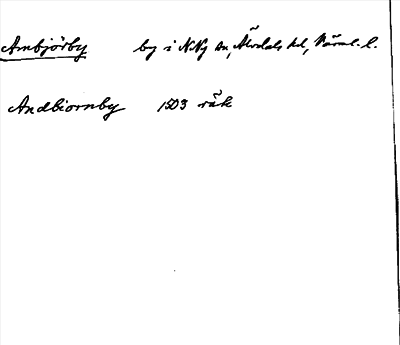 Ambjörby by i N.Ny sn, Älvdals hd, Värml. l.
Andbiornby 1503 räk